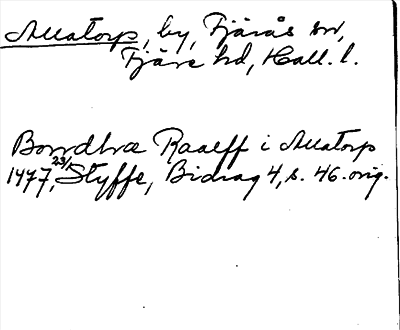 Allatorp, by, Fjärås sn,
Fjäre hd, Hall. l.
Bondhræ Raaeff i Allatorp
1477 23/1, Styffe, Bidrag 4, s. 46. orig.